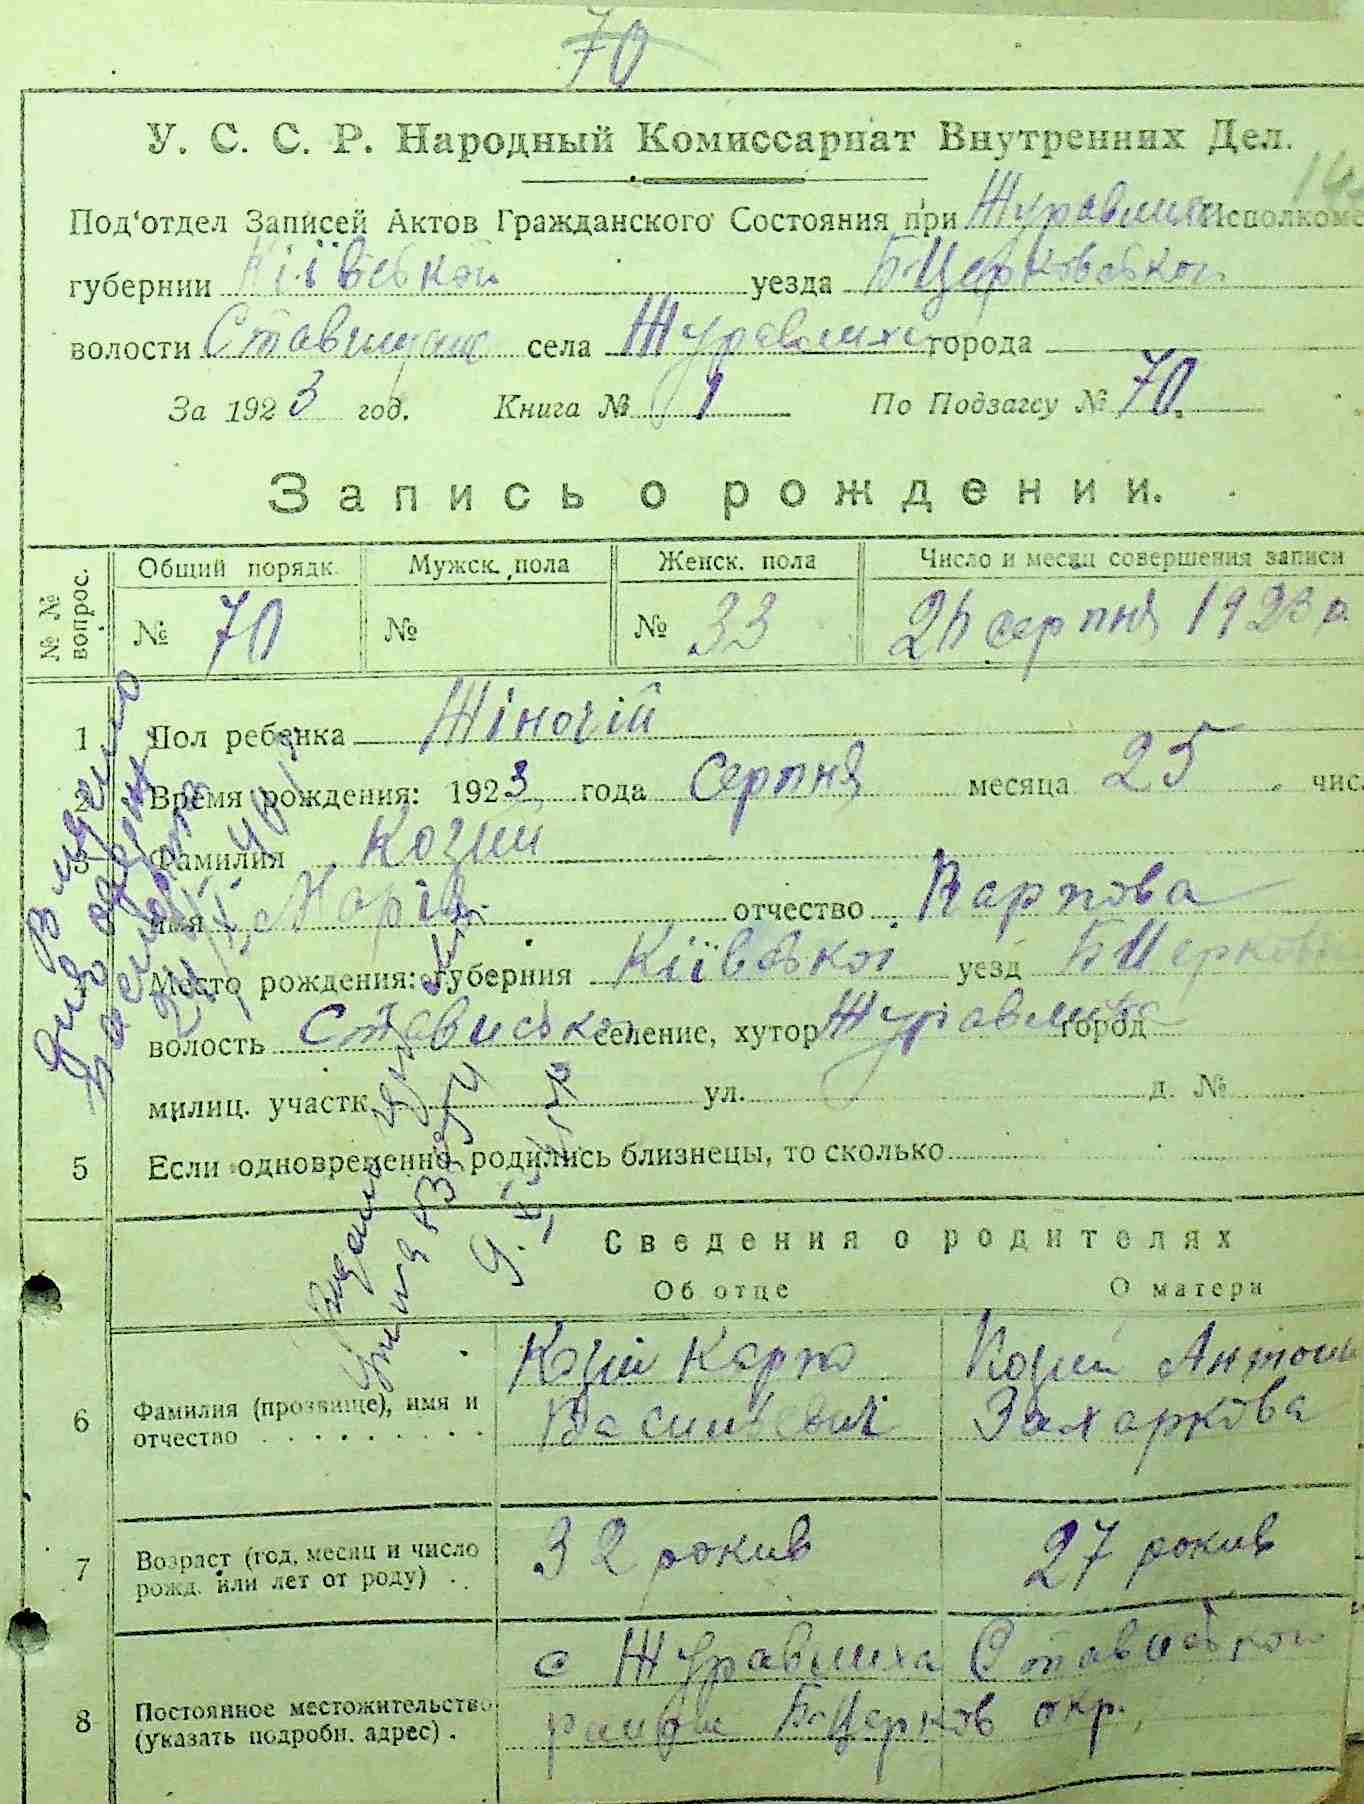 70
У. С. С. Р. Народный Комиссариат Внутренних Дел.
Под'отдел Записей Актов Гражданского Состояния при Журавлиха Исполкоме
губернии Кіївської уезда Б-Церковської
волости Ставищанс села Журавлиха города
За 1923 год. Книга № 1 По Подзагсу № 70
Запись о рождении.
№ № вопрос. Общий порядк. Мужск. пола Женск. пола Число и месяц совершения записи
№ 70 № № 33 26 серпня 1923 р.
1 Пол ребенка Жіночій
2 Время рождения: 1923 года Серпня месяца 25 чис.
3 Фамилия Козий
имя Марія отчество Карпова
Место рождения: губерния Кіївської уезд Б Церковс
волость Стависької селение, хутор Журавлиха город
милиц. участк. ул. д. №
5 Если одновременно родились близнецы, то сколько
Сведения о родителях
Об отце О матери
6 Фамилия (прозвище), имя и отчество Козій Карпо Василевич Козий Антоні Захаркова
7 Возраст (год, месяц и число рожд. или лет от роду) 32 рокив 27 рокив
8 Постоянное местожительство (указать подробн. адрес) с Журавлиха Стависької
району Б-Церков окр.